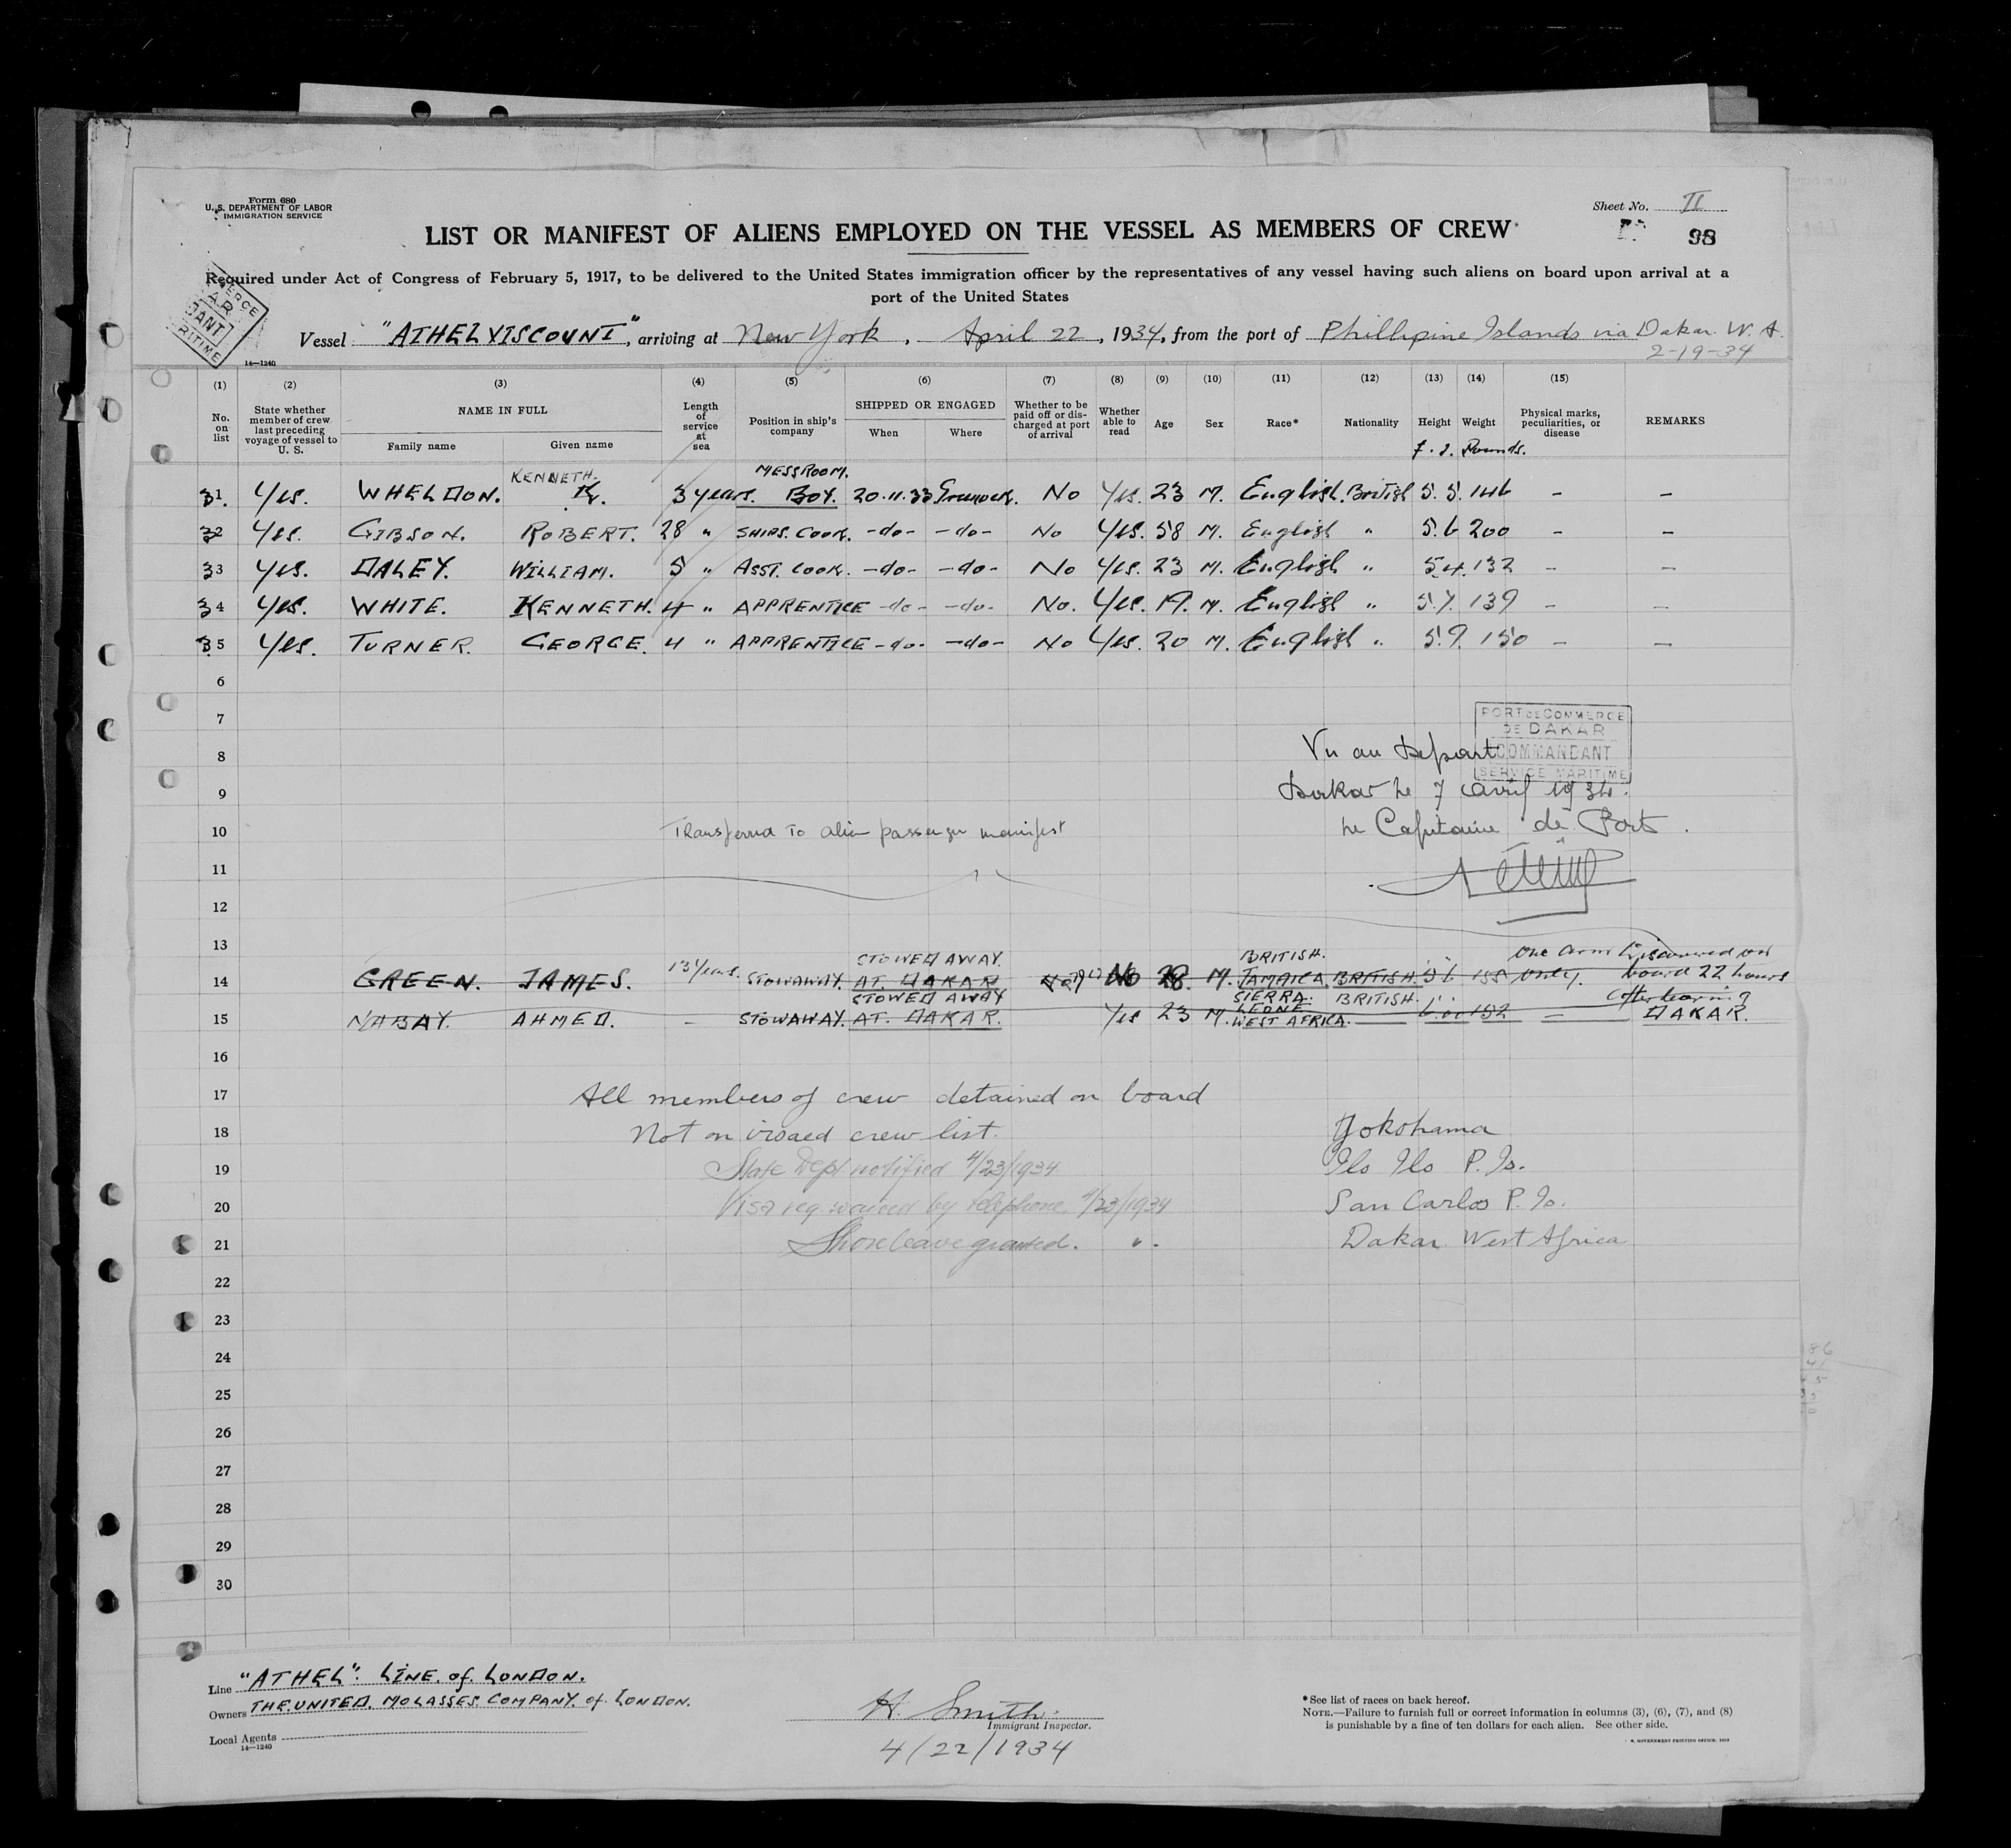 Form 680
U. S. DEPARTMENT OF LABOR
IMMIGRATION SERVICE
Sheet No. II
98
LIST OR MANIFEST OF ALIENS EMPLOYED ON THE VESSEL AS MEMBERS OF CREW
Required under Act of Congress of February 5, 1917, to be delivered to the United States immigration officer by the representatives of any vessel having such aliens on board upon arrival at a
port of the United States
Vessel "ATHELVISCOUNT", arriving at New York, April 22, 1934, from the port of Phillipine Islands via Dakar. W. A.
2-19-34
14—1240
(1) (2) (3) (4) (5) (6) (7) (8) (9) (10) (11) (12) (13) (14) (15)
No. on list
State whether member of crew last preceding voyage of vessel to U. S.
NAME IN FULL
Family name
Given name
Length of service at sea
Position in ship's company
SHIPPED OR ENGAGED
When
Where
Whether to be paid off or discharged at port of arrival
Whether able to read
Age
Sex
Race*
Nationality
Height
Weight
Physical marks, peculiarities, or disease
REMARKS
f. i. Pounds.
KENNETH. MESSROOM.
31. Yes. WHELDON. K. 3 years. BOY. 20.11.33 Greenock. No Yes. 23 M. English. British 5. 5. 146 - -
32 Yes. GIBSON. ROBERT. 28 " SHIPS. COOK. -do- -do- No Yes. 58 M. English " 5.6 200 - -
33 Yes. DALEY. WILLIAM. 5 " ASST. COOK. -do- -do- No Yes. 23 M. English " 5.4. 132 - -
34 Yes. WHITE. KENNETH. 4 " APPRENTICE -do- -do- No. Yes. 19. M. English " 5.7. 139 - -
35 Yes. TURNER. GEORGE. 4 " APPRENTICE -do- -do- No Yes. 20 M. English " 5.9. 150 - -
6
7
PORT DE COMMERCE
DE DAKAR
COMMANDANT
SERVICE MARITIME
8 Vu au Depart
9 Dakar le 7 avril 1934.
10 Transferred to alien passenger manifest le Capitaine de Port.
11
12
13
STOWED AWAY. BRITISH. One arm Discovered on
14 GREEN. JAMES. 13 years. STOWAWAY. AT. DAKAR No 28. M. JAMAICA. BRITISH. 5.6 155 only. board 22 hours
STOWED AWAY SIERRA. BRITISH. after leaving
LEONE
15 NABAY. AHMED. - STOWAWAY. AT. DAKAR. Yes 23 M. WEST AFRICA. 6.00 152 - DAKAR.
16
17 All members of crew detained on board
18 Not on visaed crew list. Yokohama
19 State Dept notified 4/23/1934 Ilo Ilo P. Is.
20 Visa req. waived by telephone. 4/23/1934 San Carlos P. Is.
21 Shore leave granted. " . Dakar West Africa
22
23
24
25
26
27
28
29
30
Line "ATHEL": LINE. of. LONDON.
Owners THE. UNITED. MOLASSES. COMPANY. of. LONDON.
Local Agents
14—1240
H. Smith.
Immigrant Inspector.
4/22/1934
*See list of races on back hereof.
NOTE.—Failure to furnish full or correct information in columns (3), (6), (7), and (8)
is punishable by a fine of ten dollars for each alien. See other side.